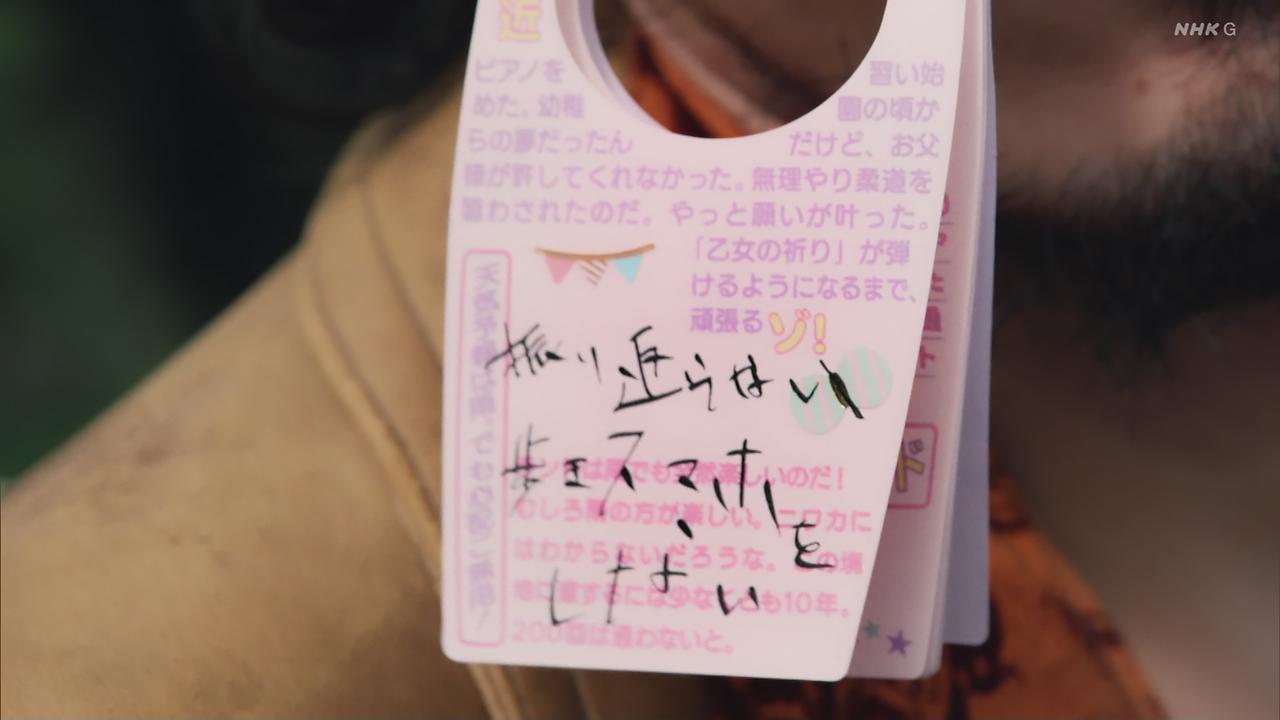 NHK G
近
ピアノを 習い始
めた。幼稚 園の頃か
らの夢だったん だけど、お父
様が許してくれなかった。無理やり柔道を
習わされたのだ。やっと願いが叶った。
「乙女の祈り」が弾
けるようになるまで、
頑張るゾ!
振り返らない
歩きスマホを
しない
は雨でも全然楽しいのだ!
むしろ雨の方が楽しい。ニワカに
はわからないだろうな。この境
地に達するには少なくとも10年。
200回は通わないと。